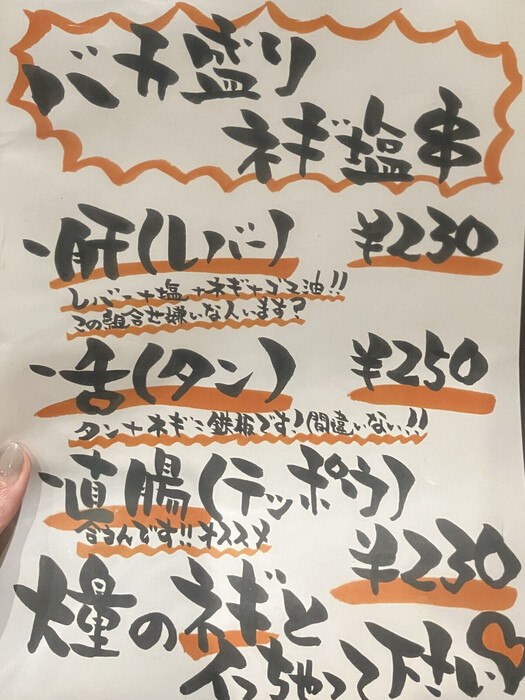 バカ盛り
ネギ塩串
-肝(レバー) ¥230
レバー+塩+ネギ+ゴマ油!!
この組合せ嫌いな人います?
-舌(タン) ¥250
タン+ネギ=鉄板です!間違いない!!
-直腸(テッポウ)
合うんです!!オススメ
¥230
大量のネギと
イっちゃって下さい